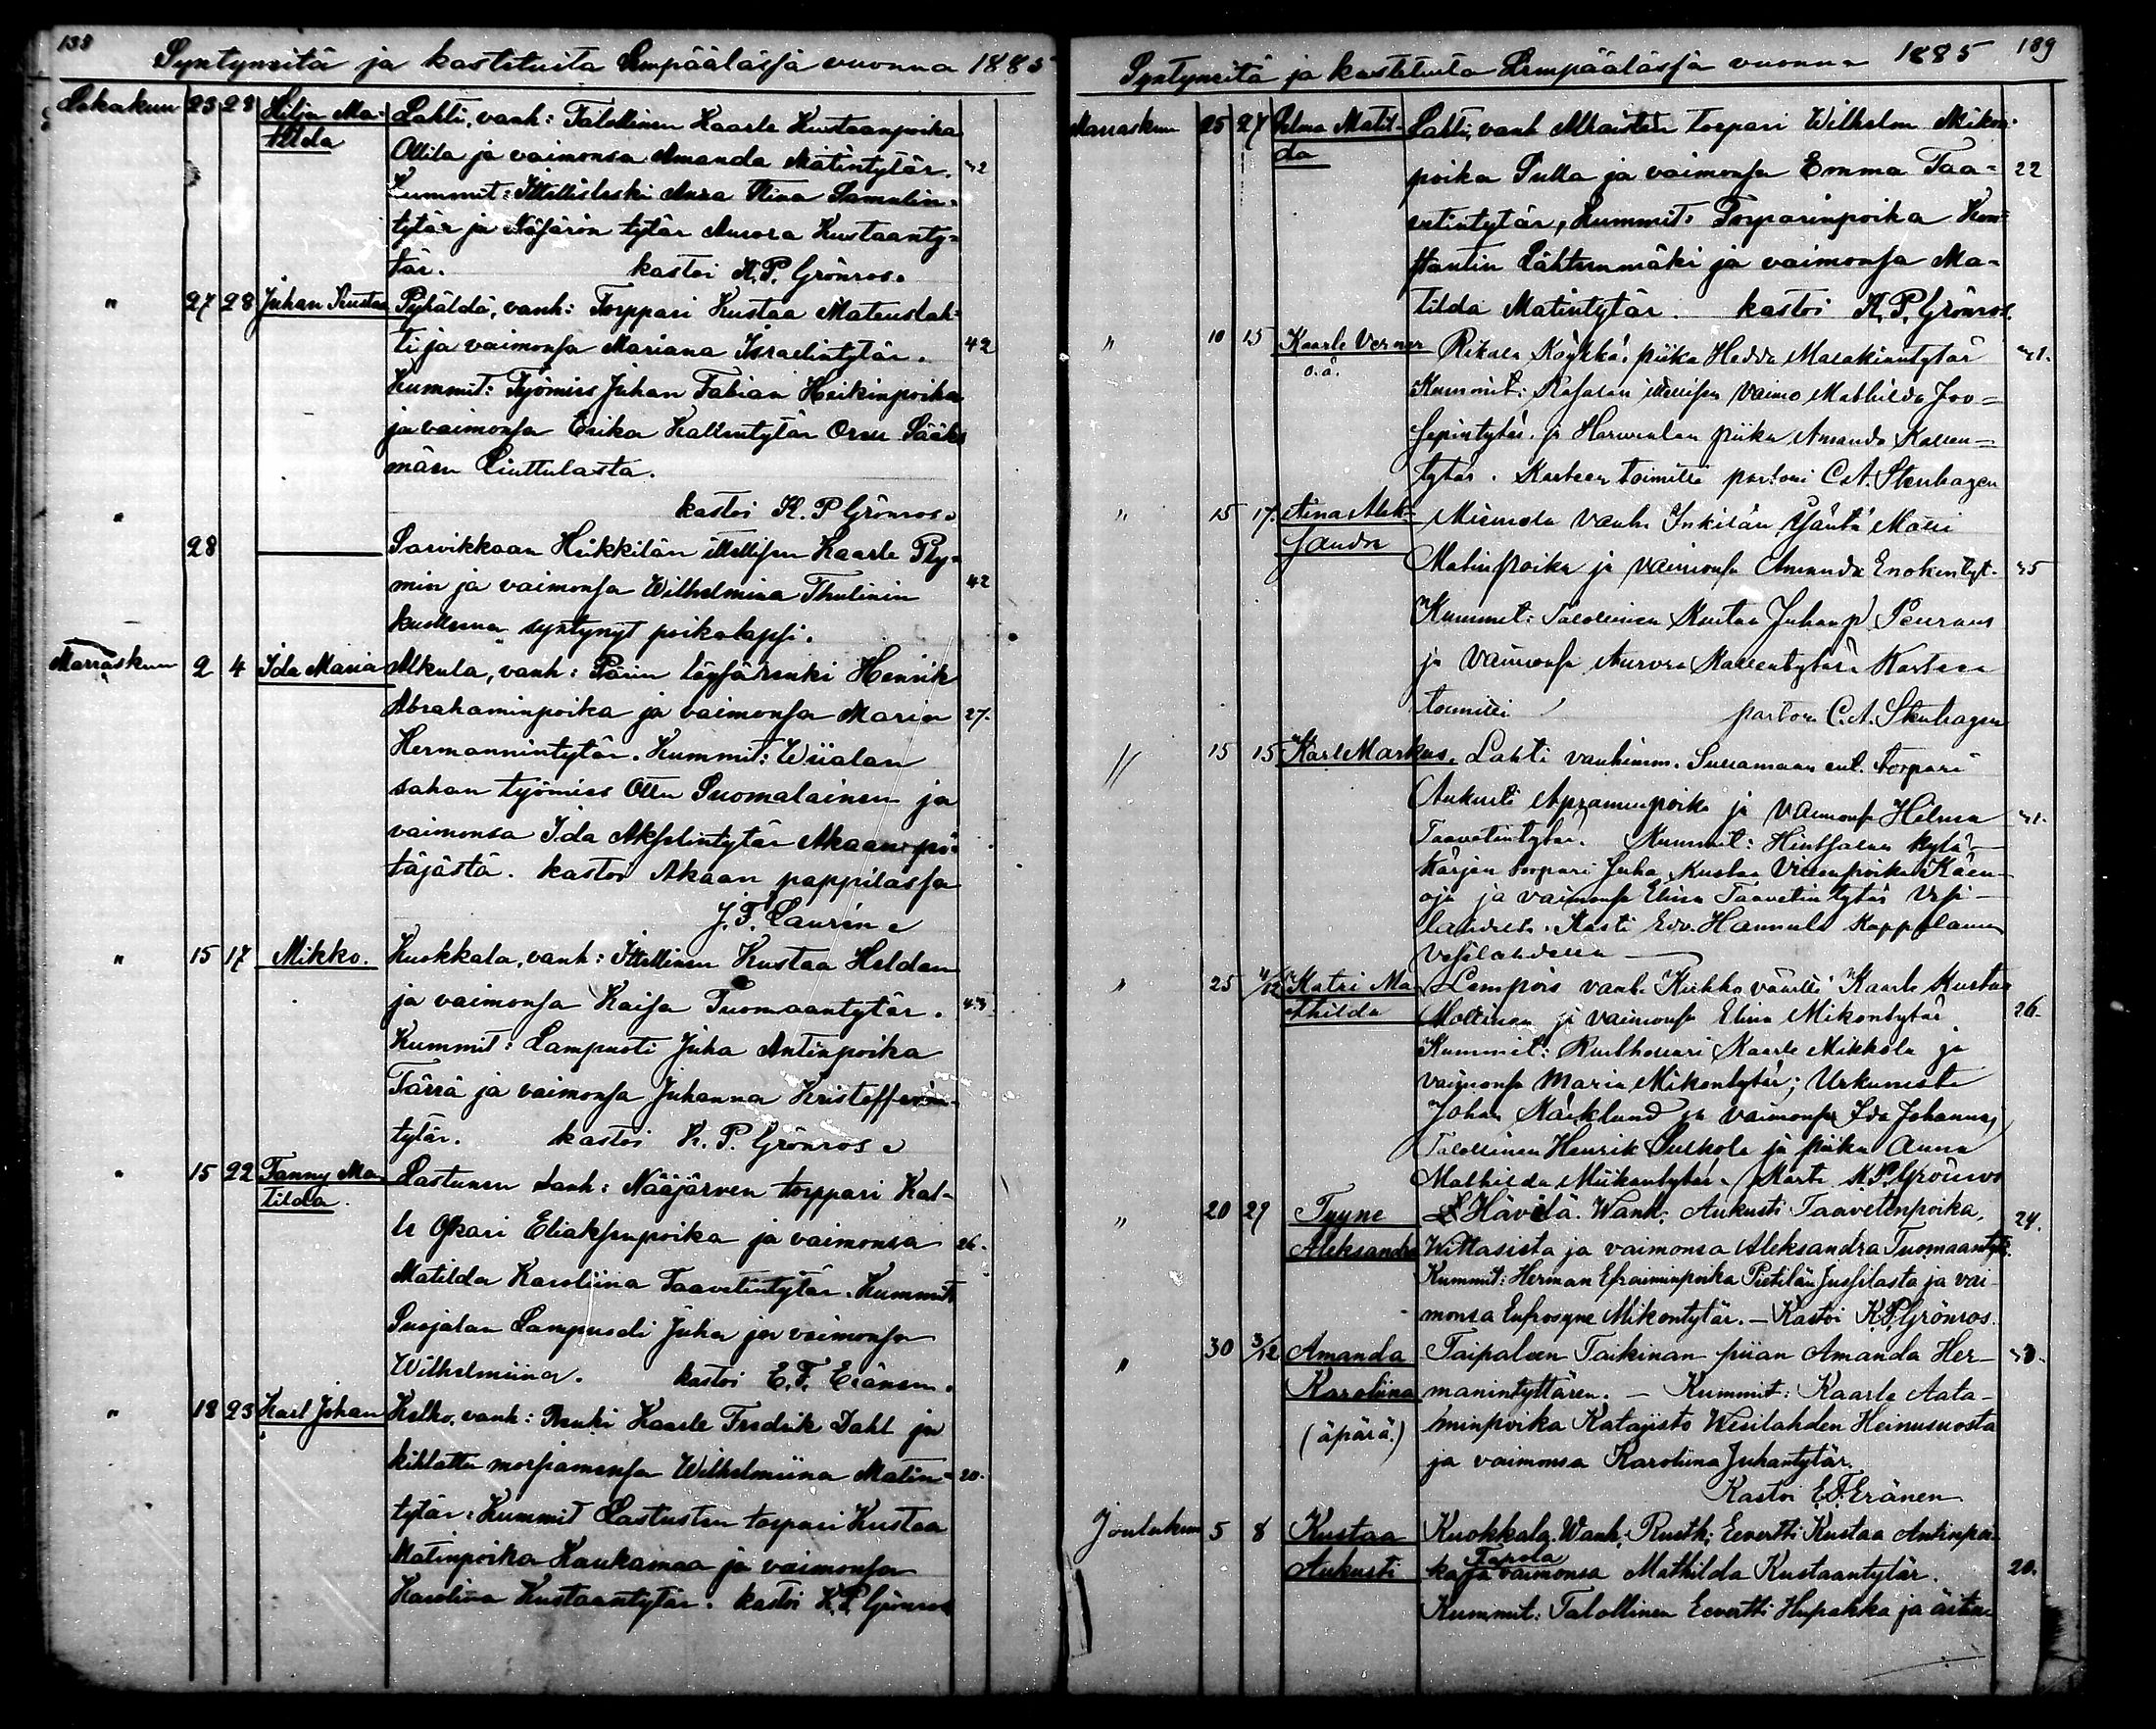 138
Syntyneitä ja kastetuita Lempäälässä vuonna 1885
Lokakuu 23 28 Hilja Ma- Lahti, vanh: Talollinen Kaarle Kustaanpoika
tilda Ollila ja vaimonsa Amanda Matintytär. 42
Kummit: Ittellisleski Anna Stina Samulin-
tytär ja Näsärön tytär Aurora Kustaanty-
tär. kastoi K. P. Grönros.
" 27 28 Juhan Kustaa Pyhältö, vanh: Torppari Kustaa Mateuslah-
ti ja vaimonsa Mariana Israelintytär. 42
Kummit: Työmies Juhan Fabian Heikinpoika
ja vaimonsa Erika Kallentytär Sääks
mäen Liuttulasta.
kastoi K. P. Grönros.
" 28 Sarvikkaan Heikkilän ittellisen Kaarle
min ja vaimonsa Wilhelmina Thulinin 42
kuolleena syntynyt poikalapsi.
Marraskuu 2 4 Ida Maria Alkula, vanh: renki Henrik
Abrahaminpoika ja vaimonsa Maria 27.
Hermannintytär. Kummit: Wiialan
sahan työmies Otto Suomalainen ja
vaimonsa Ida Akselintytär Akaan pi-
täjästä. kastoi Akaan pappilassa
J. F. Laurén
" 15 17 Mikko. Kuokkala, vanh: Ittellinen Kustaa Heldan
ja vaimonsa Kaisa Tuomaantytär. 43
Kummit: Lampuoti Juha Antinpoika
Tärrä ja vaimonsa Juhanna Kristofferin-
tytär. kastoi K. P. Grönros
" 15 22 Fanny Ma- Lastunen vanh: Nääjärven torppari Kal-
tilda. le Oskari Eliaksenpoika ja vaimonsa 26.
Matilda Karoliina Taavetintytär. Kummit
Suojalan Lampuodi Juha ja vaimonsa
Wilhelmiina. kastoi E. F. Eränen.
" 18 23 Karl Johan Kelho, vanh: Renki Kaarle Fredrik Dahl ja
kihlattu morsiamensa Wilhelmiina Matin- 20.
tytär: Kummit Lastusten torpari Kustaa
Matinpoika Kaukamaa ja vaimonsa
Karolina Kustaantytär. kastoi K. P. Grönros
189
Syntyneitä ja kastetuita Lempäälässä vuonna 1885
Marraskuu 25 27 Selma Matil- Lahti, vanh torpari Wilhelm Mikon-
da poika Sulla ja vaimonsa Emma Taa- 22
vetintytär, Kummit: Torparinpoika Kon-
stantin Lähteenmäki ja vaimonsa Ma-
tilda Matintytär. kastoi K. P. Grönros.
" 10 15 Kaarle Verner piika Hedda Malakiantytär
o. ä. Kummit: ittellisen vaimo Mathilda Joo-
sepintytär ja piika Amanda Kallen-
tytär. Kasteen toimitti pastori C. A. Stenhagen
" 15 17. Aina Alek- Miemola vanh. Inkilän Matti
sandra Matinpoika ja vaimonsa Amanda Enokintyt. 45
Kummit: Talollinen Kustaa Juhanp. Peurans
ja vaimonsa Aurora Kallentytär. Kasteen
toimitti pastori C. A. Stenhagen
" 15 15 Karl Markus. Lahti vanhimm. torpari
Aukusti Apraminpoika ja vaimonsa Hilma
Taavetintytär. Kummit: kylä-
Kärjen torpari Juha Kustaa
oja ja vaimonsa Elina Taavetintytär Vesi-
lahdelta. Kasti Edv. Hannula Kappalainen
Vesilahdella
" 25 4/12 Katri Ma- Lempois vanh. Kaarle Kustaa
thilda Mollinen ja vaimonsa Elina Mikontytär 26.
Kummit: Rusthollari Kaarle Mikkola ja
vaimonsa Maria Mikontytär; Urkuniste
Johan Näcklund ja vaimonsa Ida Johanna,
Talollinen Henrik ja piika Anna
Mathilda Miikantytär. Kasti K. P. Grönros
" 20 29 Tyyne Hävilä. Wanh: Aukusti Taavetinpoika, 24.
Aleksandra Wittasista ja vaimonsa Aleksandra Tuomaantytär.
Kummit: Herman Efraiminpoika Pietilän Jussilasta ja vai-
monsa Eufrosyne Mikontytär. — Kastoi K. P. Grönros.
" 30 3/12 Amanda Taipaleen Taikinan piian Amanda Her-
Karoliina manintyttären. — Kummit: Kaarle Aata-
(äpärä.) minpoika Katajisto Wesilahden Heinusuosta
ja vaimonsa Karoliina Juhantytär.
Kastoi E. F. Eränen
Joulukuu 5 8 Kustaa Kuokkala. Wanh: Rusth: Eevertti Kustaa Antinpoi-
Tapola
Aukusti ka ja vaimonsa Mathilda Kustaantytär. 20.
Kummit: Talollinen Eevertti Hupakka ja äitin-